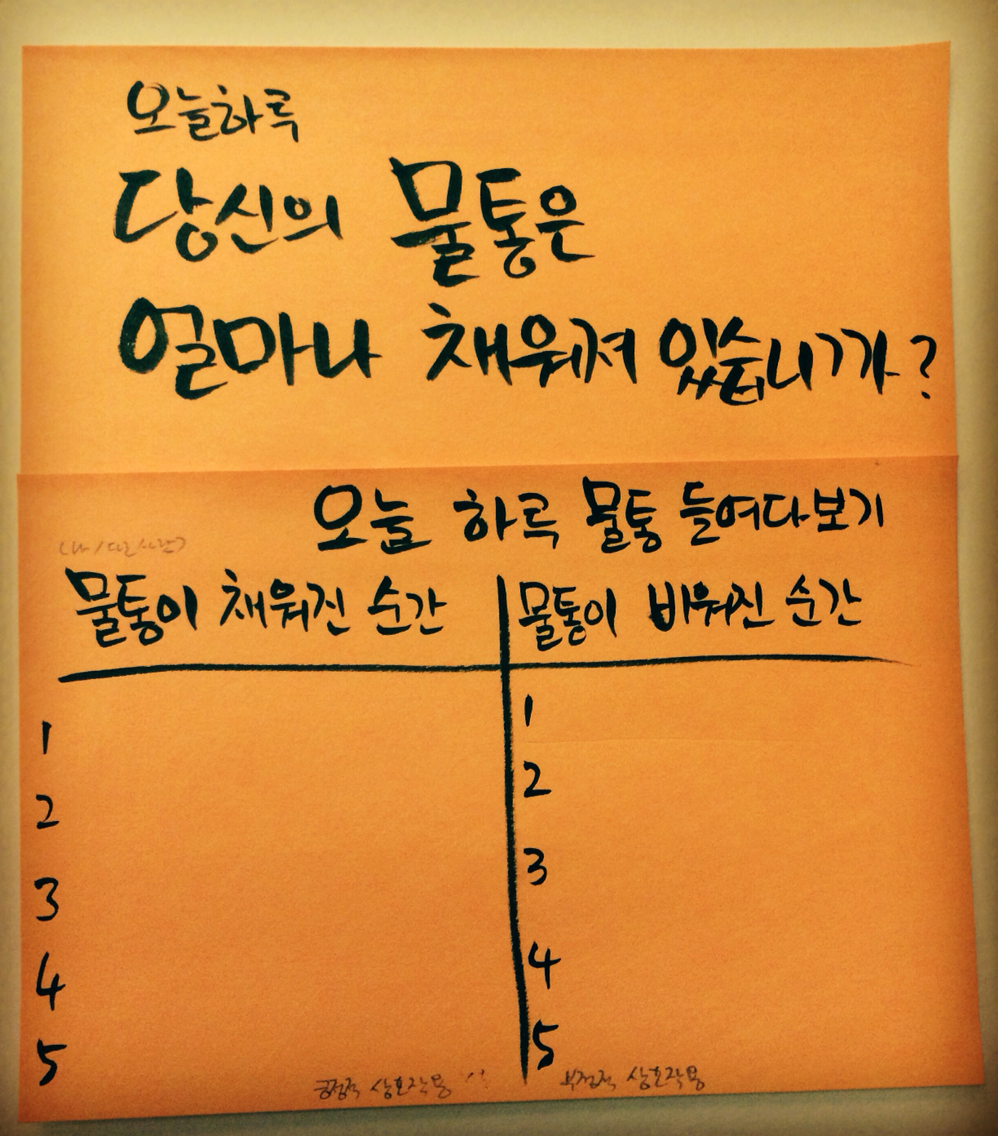 오늘하루
당신의 물통은
얼마나 채워져 있습니까?
오늘 하루 물통 들여다보기
(나/다른사람)
물통이 채워진 순간 물통이 비워진 순간
1 1
2 2
3 3
4 4
5 5
긍정적 상호작용 부정적 상호작용